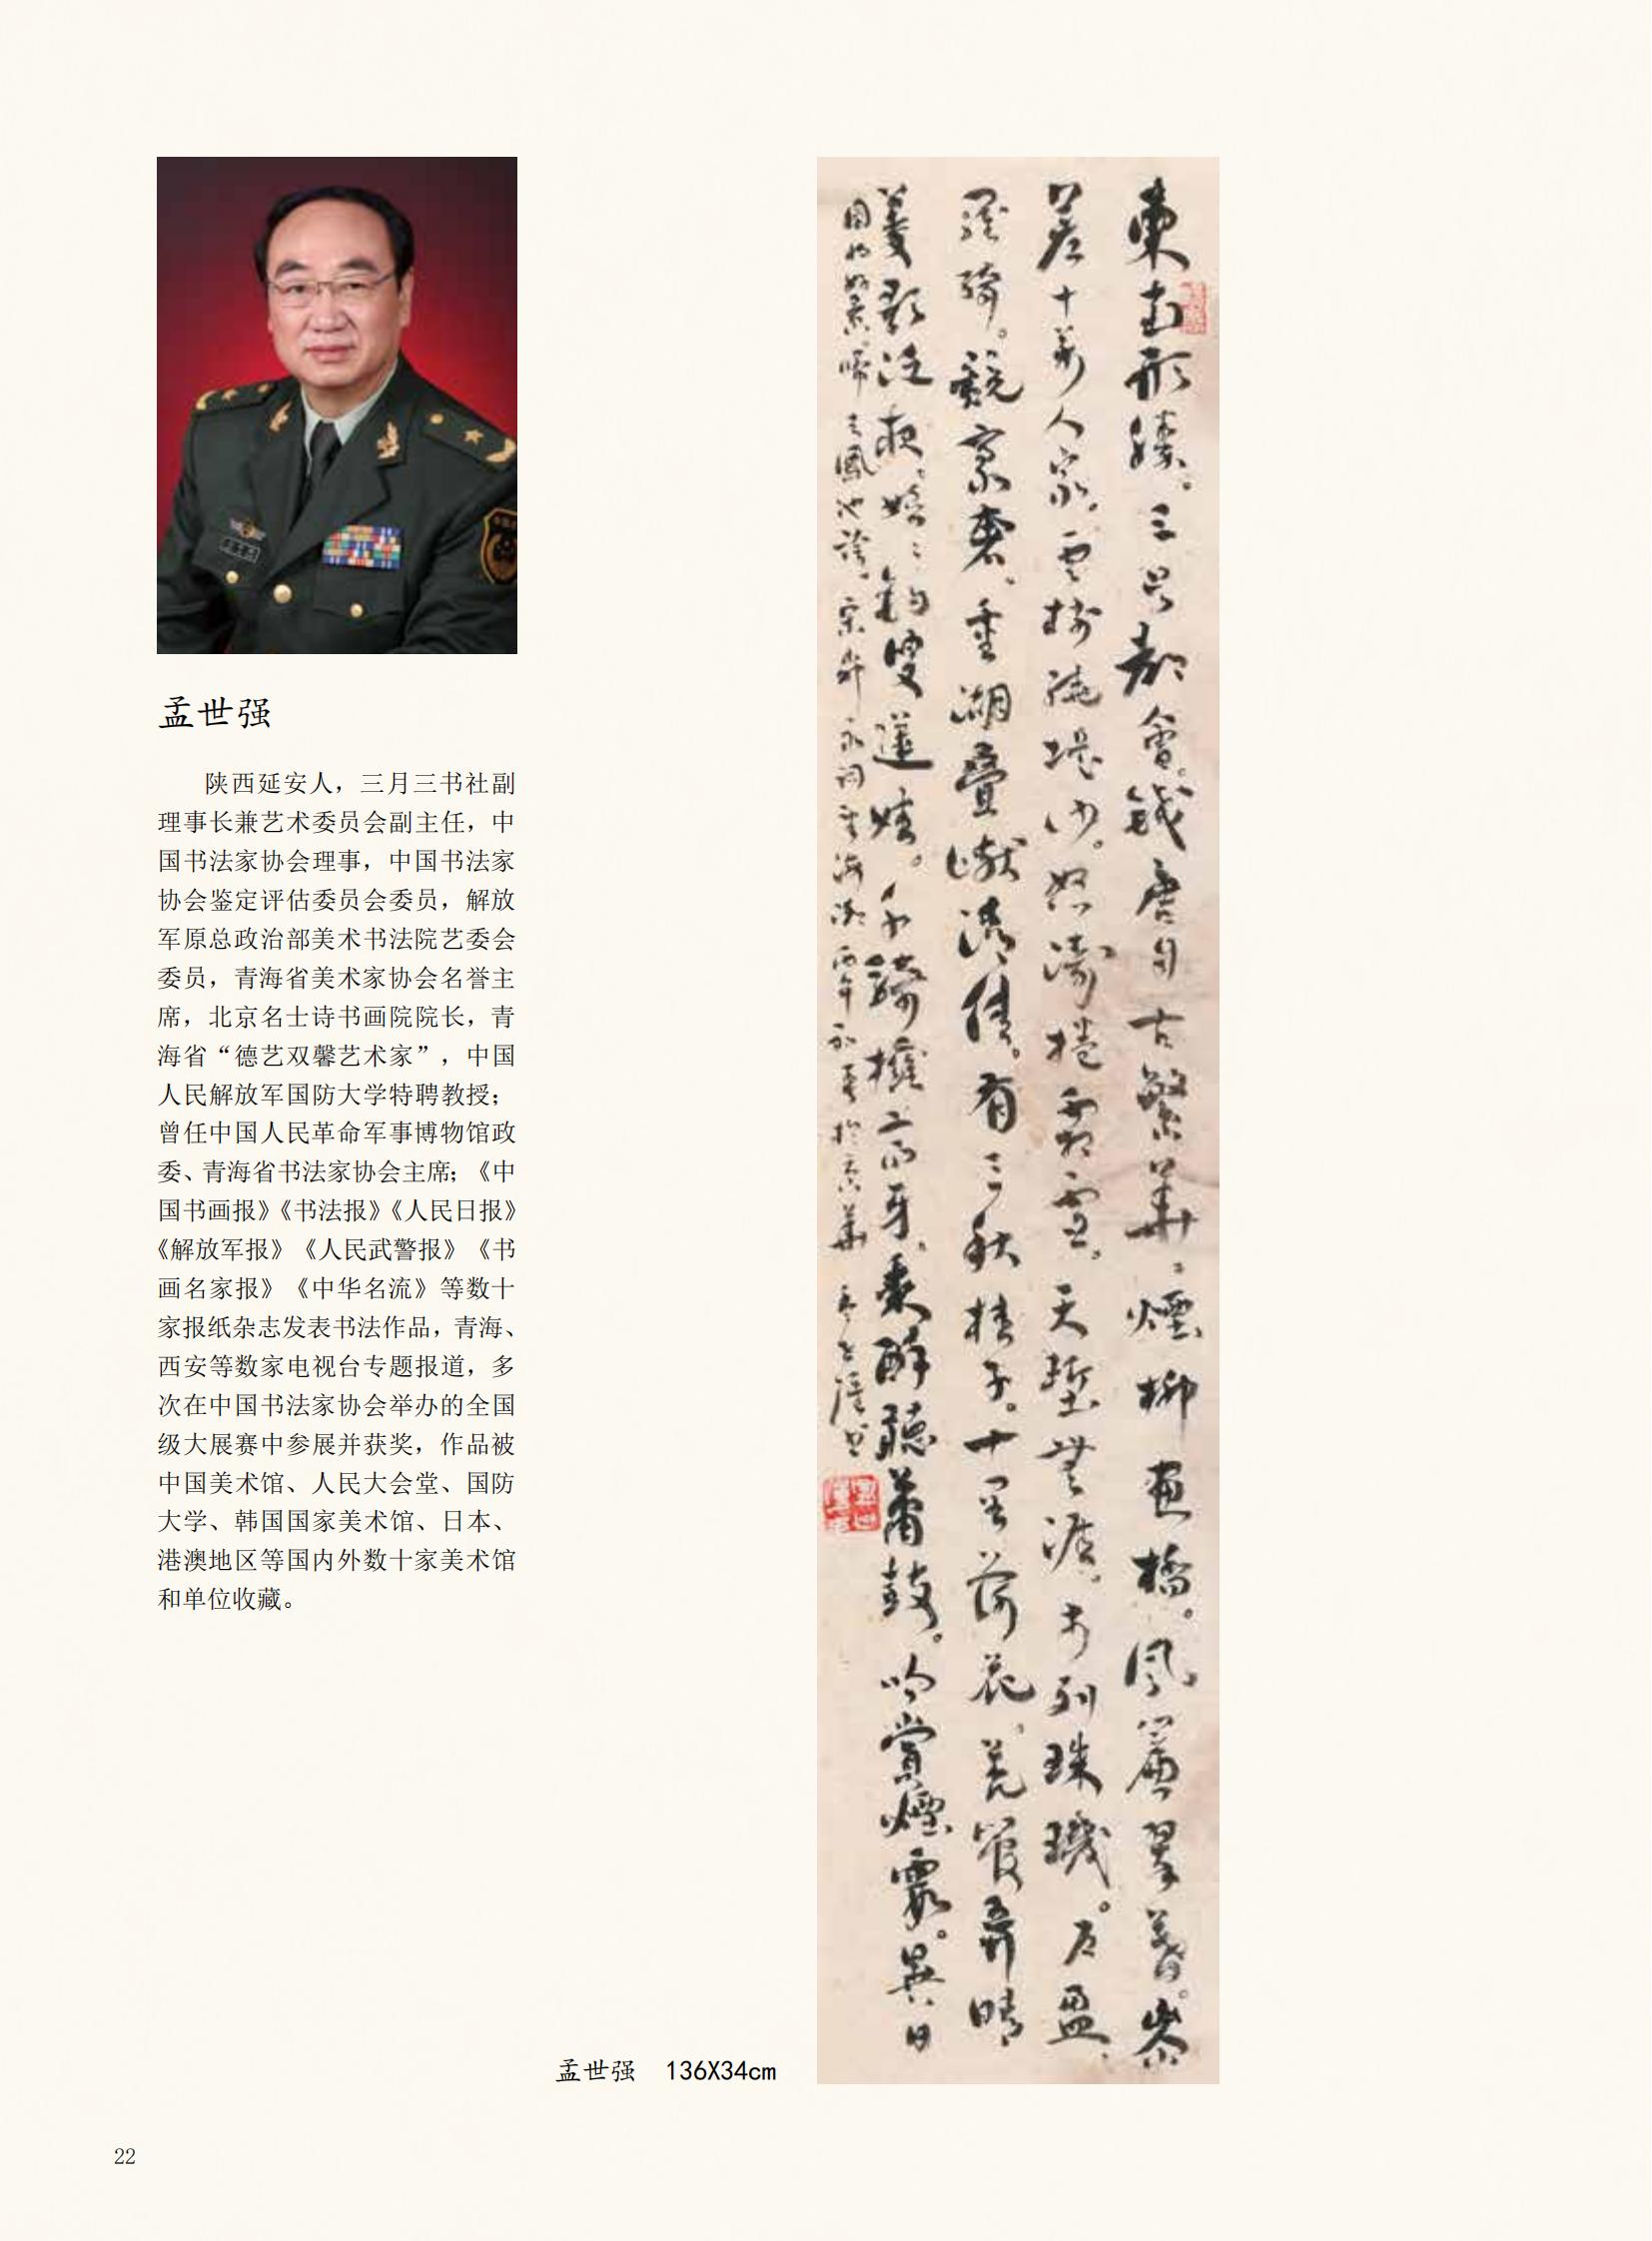 孟世强
陕西延安人，三月三书社副
理事长兼艺术委员会副主任，中
国书法家协会理事，中国书法家
协会鉴定评估委员会委员，解放
军原总政治部美术书法院艺委会
委员，青海省美术家协会名誉主
席，北京名士诗书画院院长，青
海省“德艺双馨艺术家”，中国
人民解放军国防大学特聘教授；
曾任中国人民革命军事博物馆政
委、青海省书法家协会主席；《中
国书画报》《书法报》《人民日报》
《解放军报》《人民武警报》《书
画名家报》《中华名流》等数十
家报纸杂志发表书法作品，青海、
西安等数家电视台专题报道，多
次在中国书法家协会举办的全国
级大展赛中参展并获奖，作品被
中国美术馆、人民大会堂、国防
大学、韩国国家美术馆、日本、
港澳地区等国内外数十家美术馆
和单位收藏。
東南形勝。三吳都會。錢唐自古繁華。煙柳畫橋。風簾翠幕。參
差十萬人家。雲樹繞堤沙。怒濤捲霜雪。天塹無涯。市列珠璣。戶盈
羅綺。競豪奢。重湖疊巘清佳。有三秋桂子。十里荷花。羌管弄晴
菱歌泛夜。嬉々釣叟蓮娃。千騎擁高牙。乘醉聽蕭鼓。吟賞煙霞。異日
圖將好景。歸去鳳池誇。宋柳永詞望海潮
孟世强 136X34cm
22